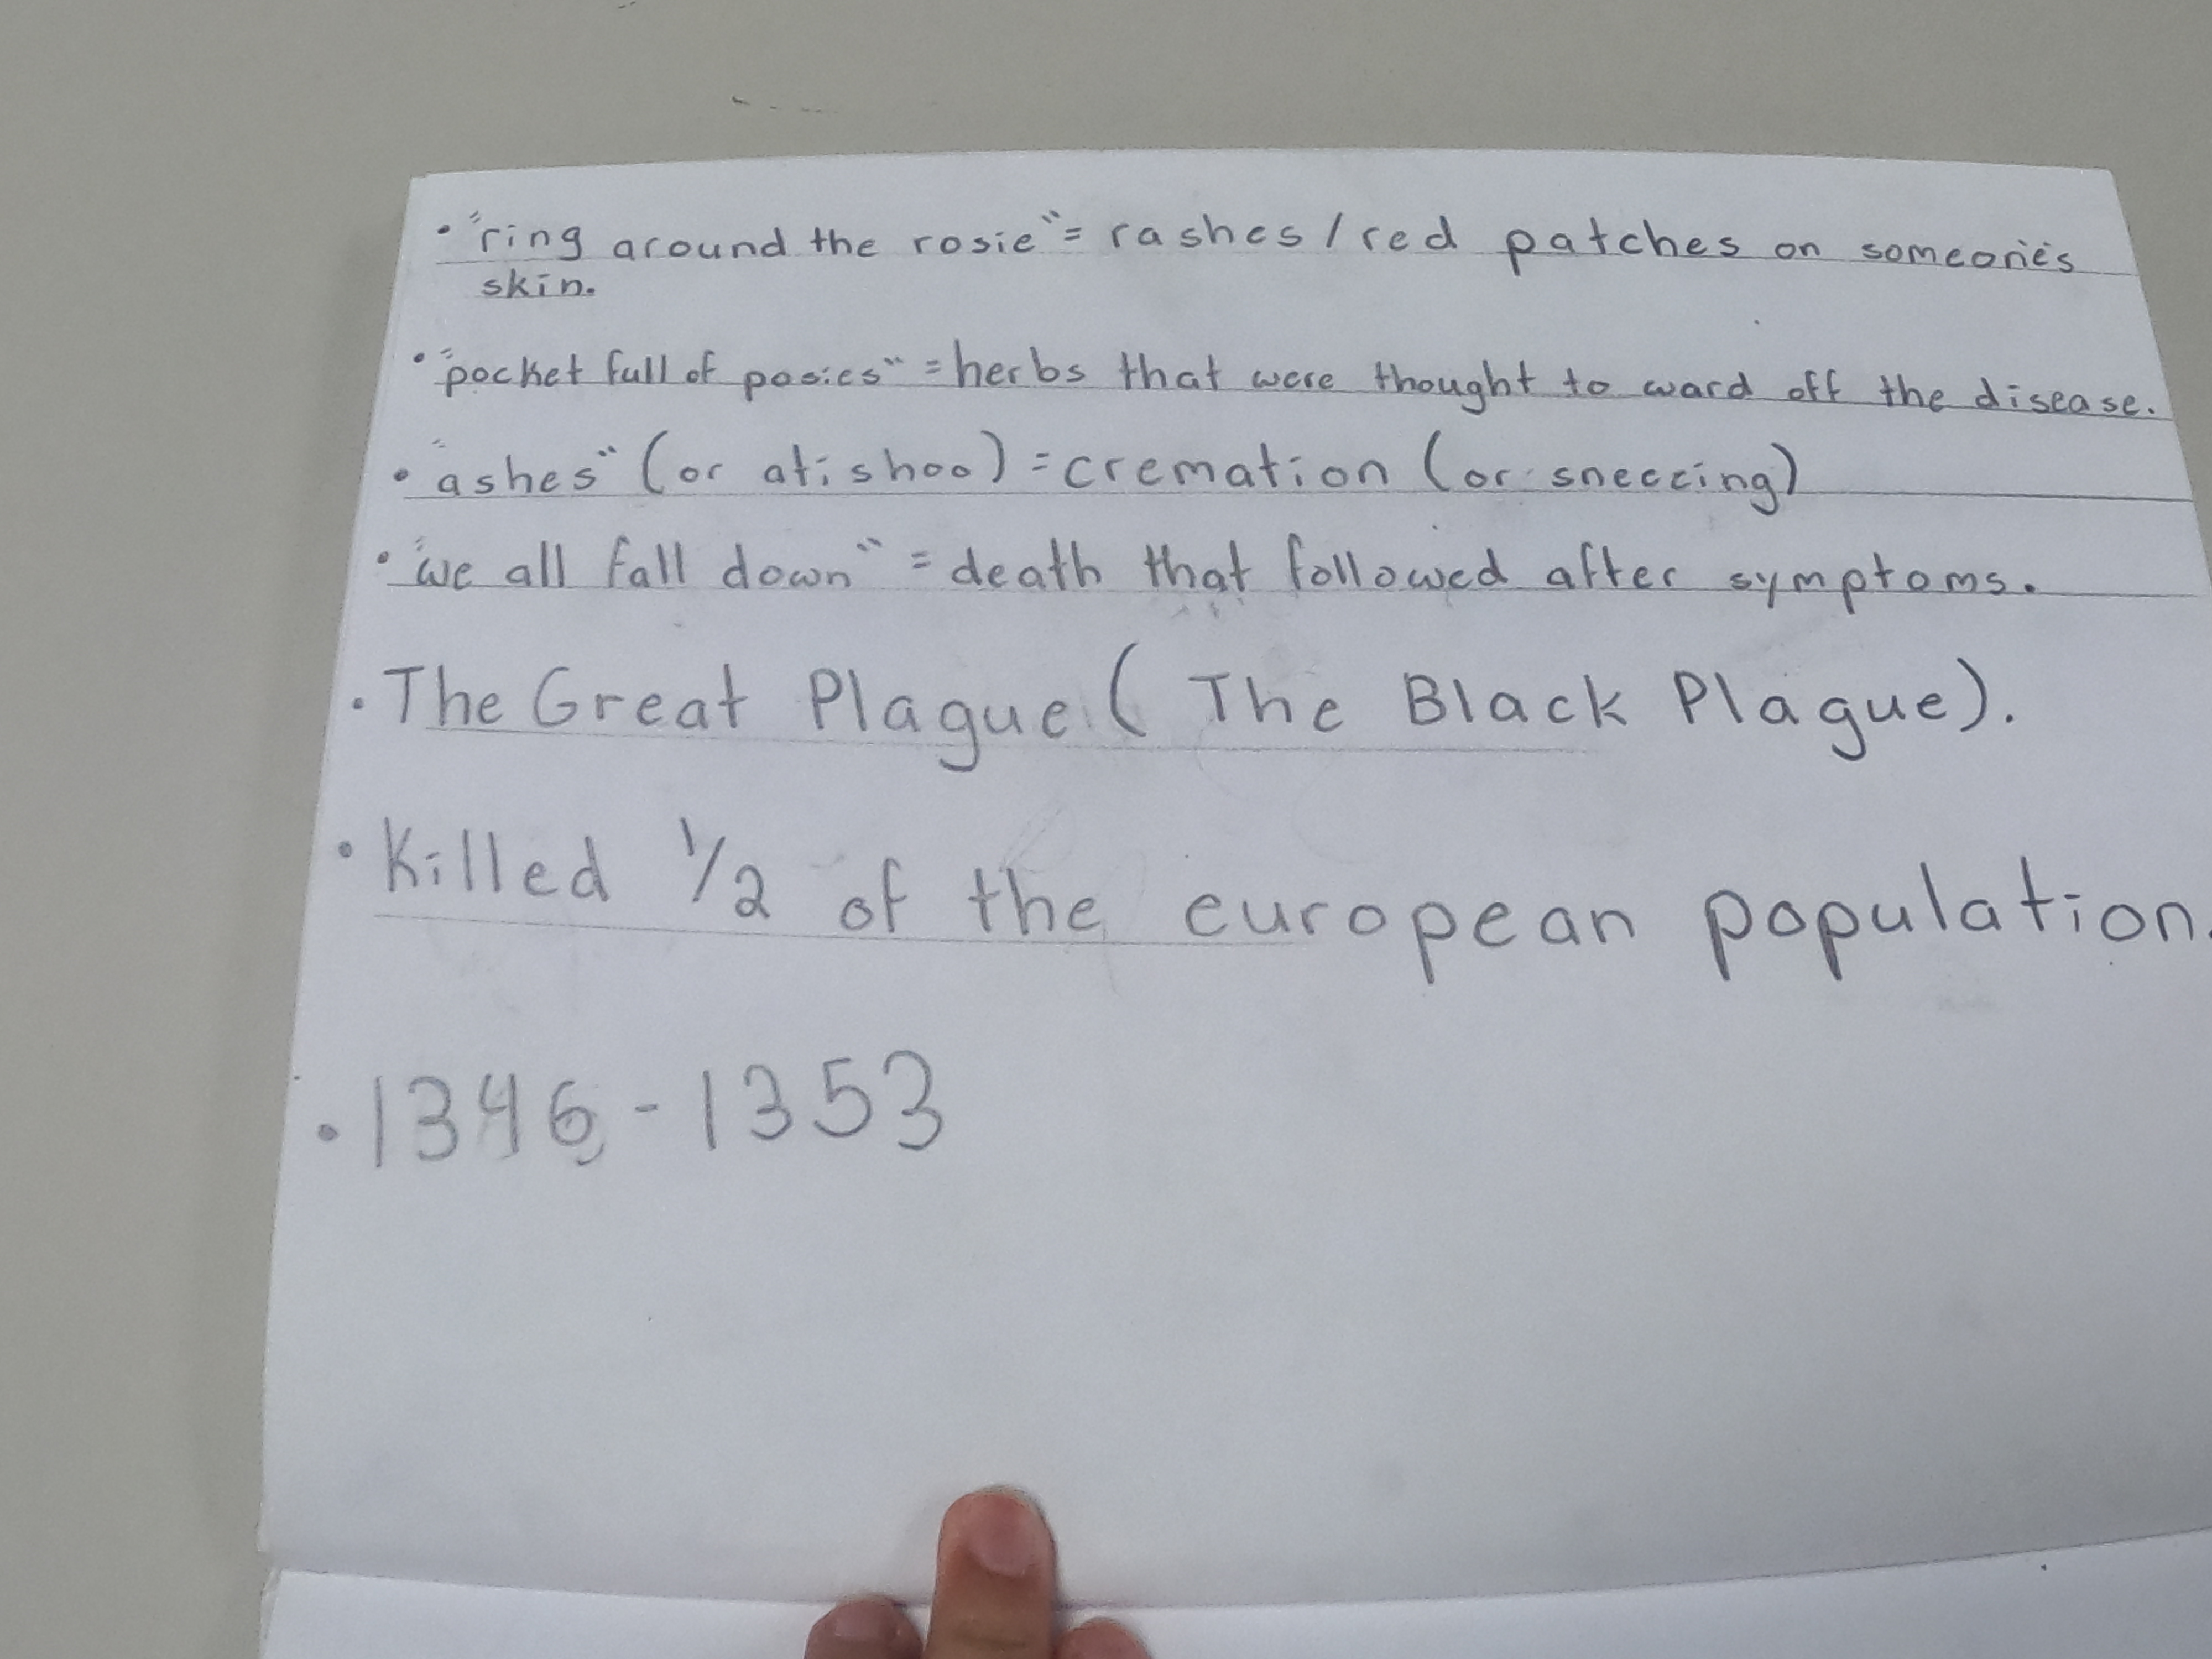 • "ring around the rosie" = rashes / red patches on someone's
skin.
• "pocket full of posies" = herbs that were thought to ward off the disease.
• "ashes" (or atishoo) = cremation (or sneezing)
• "we all fall down" = death that followed after symptoms.
• The Great Plague ( The Black Plague).
• Killed 1/2 of the european population.
• 1346 - 1353